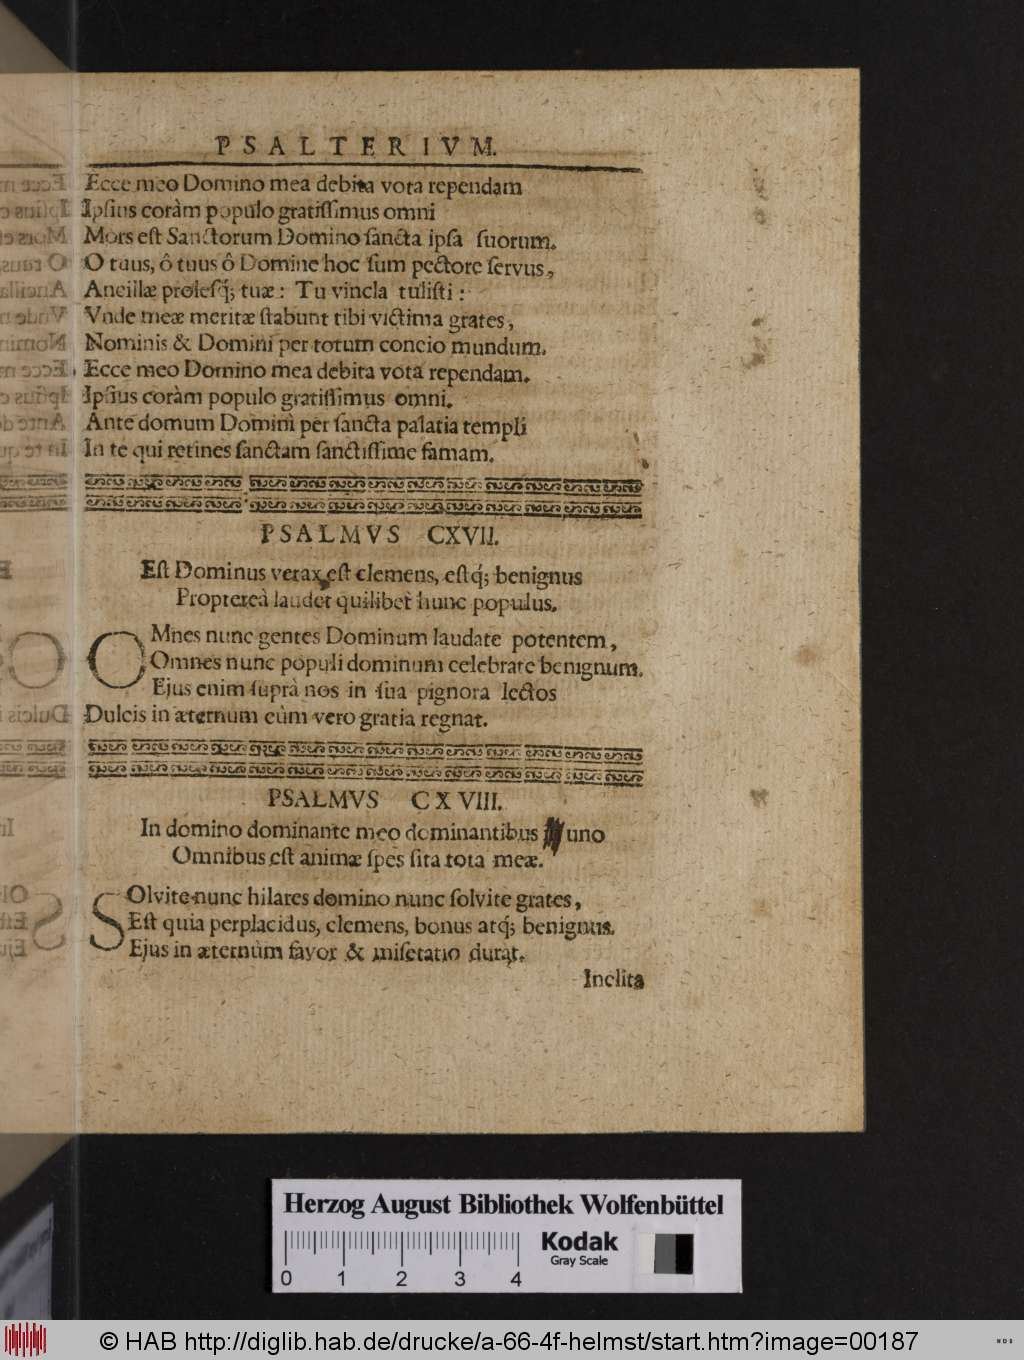 PSALTERIVM.
Ecce meo Domino mea debita vota rependam
Ipſius coràm populo gratiſſimus omni
Mors eſt Sanctorum Domino ſancta ipſa ſuorum.
O tuus, ô tuus ô Domine hoc ſum pectore ſervus,
Ancillæ proleſq́; tuæ: Tu vincla tuliſti:
Vnde meæ meritæ ſtabunt tibi victima grates,
Nominis & Domini per totum concio mundum.
Ecce meo Domino mea debita vota rependam.
Ipſius coràm populo gratiſſimus omni.
Ante domum Domini per ſancta palatia templi
In te qui retines ſanctam ſanctiſſime famam.
PSALMVS CXVII.
Eſt Dominus verax eſt clemens, eſtq́; benignus
Proptereà laudet quilibet hunc populus.
OMnes nunc gentes Dominum laudate potentem,
Omnes nunc populi dominum celebrate benignum.
Ejus enim ſuprà nos in ſua pignora lectos
Dulcis in æternum cùm vero gratia regnat.
PSALMVS CXVIII.
In domino dominante meo dominantibus uno
Omnibus eſt animæ ſpes ſita tota meæ.
SOlvite nunc hilares domino nunc ſolvite grates,
Eſt quia perplacidus, clemens, bonus atq́; benignus.
Ejus in æternùm favor & miſetatio durat.
Inclita
Herzog August Bibliothek Wolfenbüttel
Kodak
Gray Scale
0 1 2 3 4
© HAB http://diglib.hab.de/drucke/a-66-4f-helmst/start.htm?image=00187